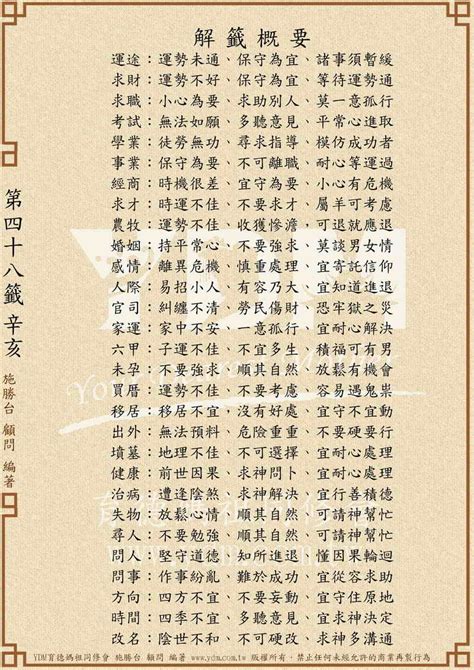 解籤概要
運途：運勢未通、保守為宜、諸事須暫緩
求財：運勢不好、保守為宜、等待運勢通
求職：小心為要、求助別人、莫一意孤行
考試：無法如願、多聽意見、平常心進取
學業：徒勞無功、尋求指導、模仿成功者
事業：保守為要、不可離職、耐心等運過
經商：時機很差、宜守不宜攻、小心有危機
求才：運勢不佳、不要求才、屬羊可考慮
農牧：運勢不佳、收獲慘澹、可退就應退
婚姻：持平常心、不要強求、莫談男女情
感情：離異危機、慎重處理、宜寄託信仰
人際：易招小人、有容乃大、宜知道進退
官司：糾纏不清、勞民傷財、恐牢獄之災
家運：家中不安、一意孤行、宜耐心解決
六甲：子運不佳、不宜多生、積福可有男
未孕：不要強求、順其自然、放鬆有機會
買厝：運勢不佳、保守為宜、容易遇鬼祟
移居：移居不宜、沒有好處、宜守不宜動
出外：無法預料、危險重重、不要外移動
墳墓：地理不佳、不可選擇、宜耐心處理
健康：前世因果、求神問卜、宜耐心處理
治病：遭逢陰煞、求神解決、宜行善積德
失物：放鬆心情、順其自然、可請神幫忙
尋人：不要勉強、順其自然、可請神幫忙
問人：堅守道德、知所進退、懂因果輪迴
問事：作事紛亂、難於成功、宜從容求助
方向：四方不宜、不要妄動、宜守住原地
時間：四季不宜、不要妄動、求神多決定
改名：陰世不佳、求神指示、求神多溝通
第四十八籤 辛亥
施勝台 顧問 編著
YDM育德媽祖同修會 施勝台 顧問 編著 www.ydm.com.tw 版權所有，禁止任何未經允許的商業再製行為